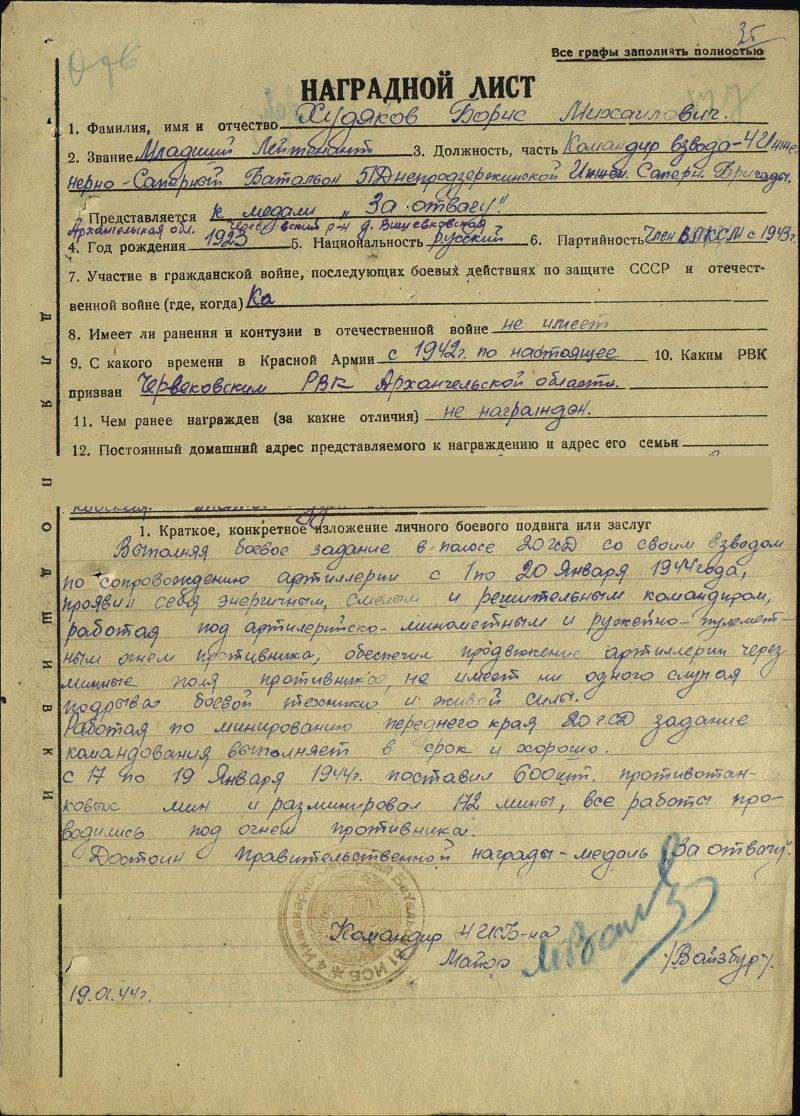 35
Все графы заполнять полностью
НАГРАДНОЙ ЛИСТ
1. Фамилия, имя и отчество Худяков Борис Михайлович.
2. Звание Младший Лейтенант 3. Должность, часть Командир взвода - 4 Инже-
нерно-Саперный Батальон 51 Днепродзержинской Инжен. Саперн. Бригады.
Представляется к медали „За отвагу"
Архангельская обл. р-н д.
4. Год рождения 1923 5. Национальность русский 6. Партийность Член ВЛКСМ с 1943г.
7. Участие в гражданской войне, последующих боевых действиях по защите СССР и отечест-
венной войне (где, когда)
8. Имеет ли ранения и контузии в отечественной войне не имеет
9. С какого времени в Красной Армии с 1942г. по настоящее 10. Каким РВК
призван Червековским РВК Архангельской области.
11. Чем ранее награжден (за какие отличия) не награжден.
12. Постоянный домашний адрес представляемого к награждению и адрес его семьи
ДЛЯ ПОДШИВКИ
1. Краткое, конкретное изложение личного боевого подвига или заслуг
Выполняя боевое задание в полосе 20 гсд со своим взводом
по сопровождению артиллерии с 1 по 20 Января 1944 года,
проявил себя энергичным, смелым и решительным командиром,
работая под артилерийско-минометным и ружейно-пулемет-
ным огнем противника, обеспечил продвижение артиллерии через
минные поля противника, не имеет ни одного случая
подрыва боевой техники и живой силы.
Работая по минированию переднего края 20 гсд задание
командования выполняет в срок и хорошо.
с 17 по 19 Января 1944г. поставил 600 шт. противотан-
ковых мин и разминировал 172 мины, все работы про-
водились под огнем противника.
Достоин Правительственной награды - медаль „За отвагу".
Командир 4 ИСБ-на
Майор /Вайзбур/.
19.01.44г.